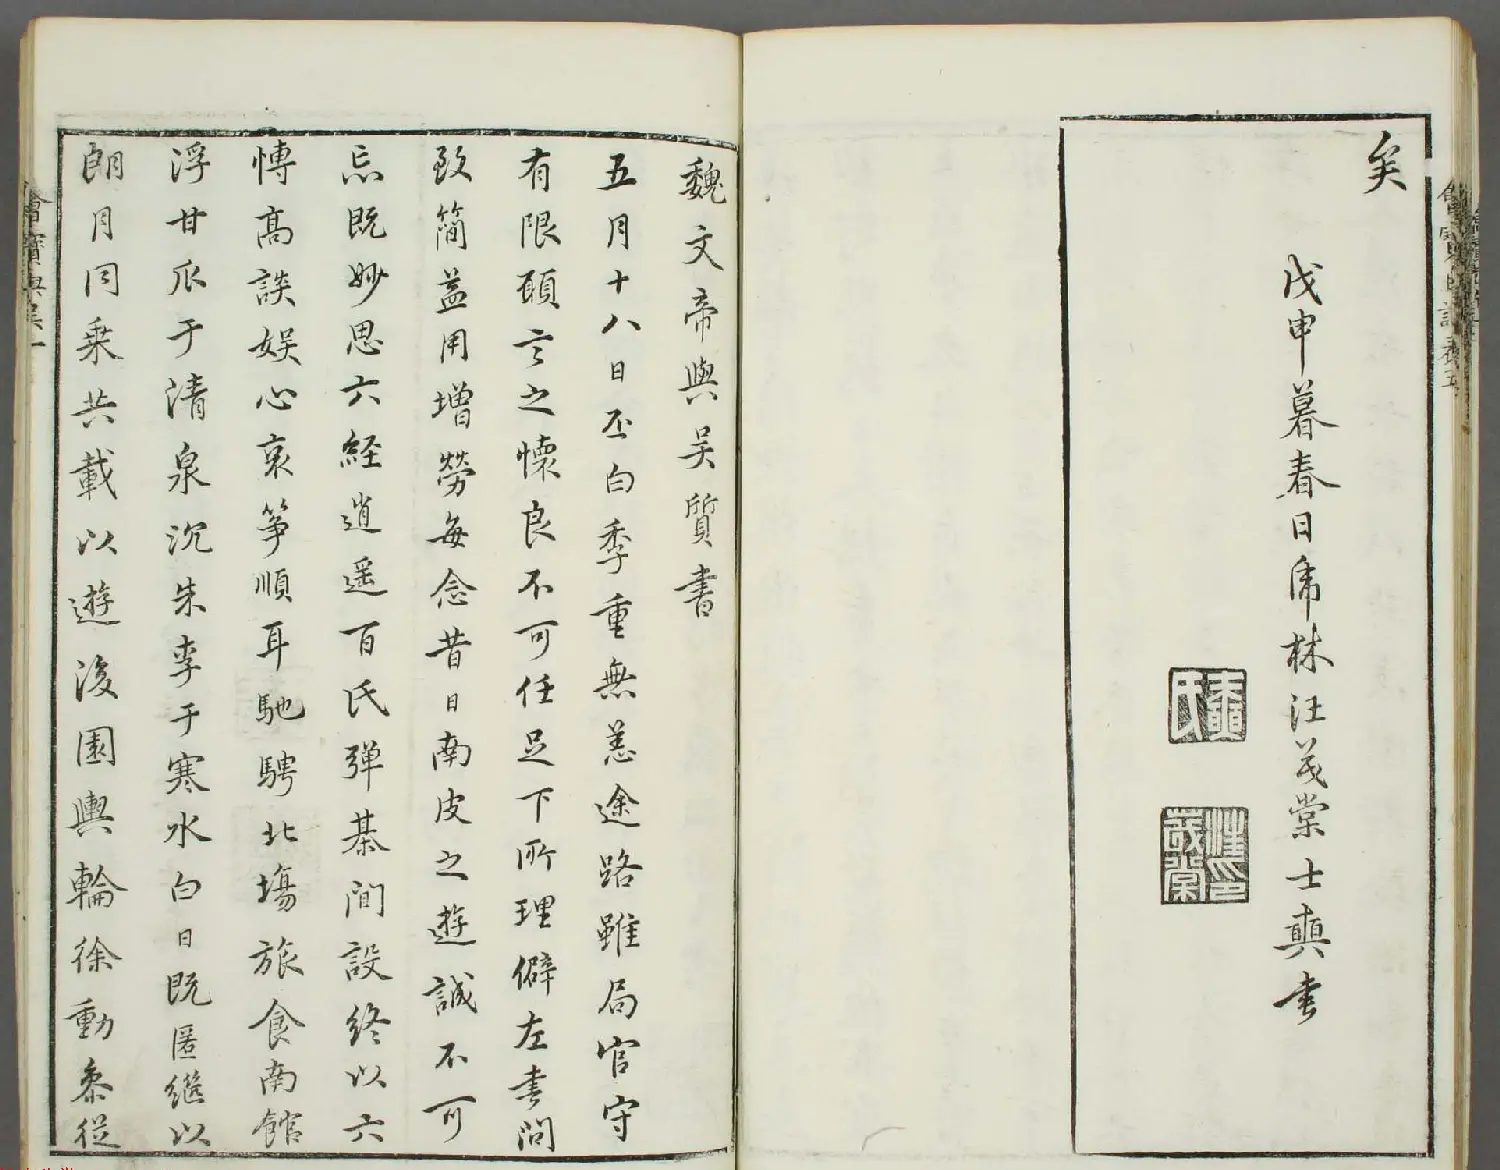 矣
戊申暮春日虎林汪茂棠士書
魏文帝與吳質書
五月十八日丕白季重無恙途路雖局官守
有限願言之懷良不可任足下所理僻左書問
致簡益用增勞每念昔日南皮之遊誠不可
忘既妙思六經逍遙百氏彈棊間設終以六
愽高談娛心哀箏順耳馳騁北場旅食南館
浮甘瓜于清泉沉朱李于寒水白日既匿繼以
朗月同乘共載以遊後園輿輪徐動參從